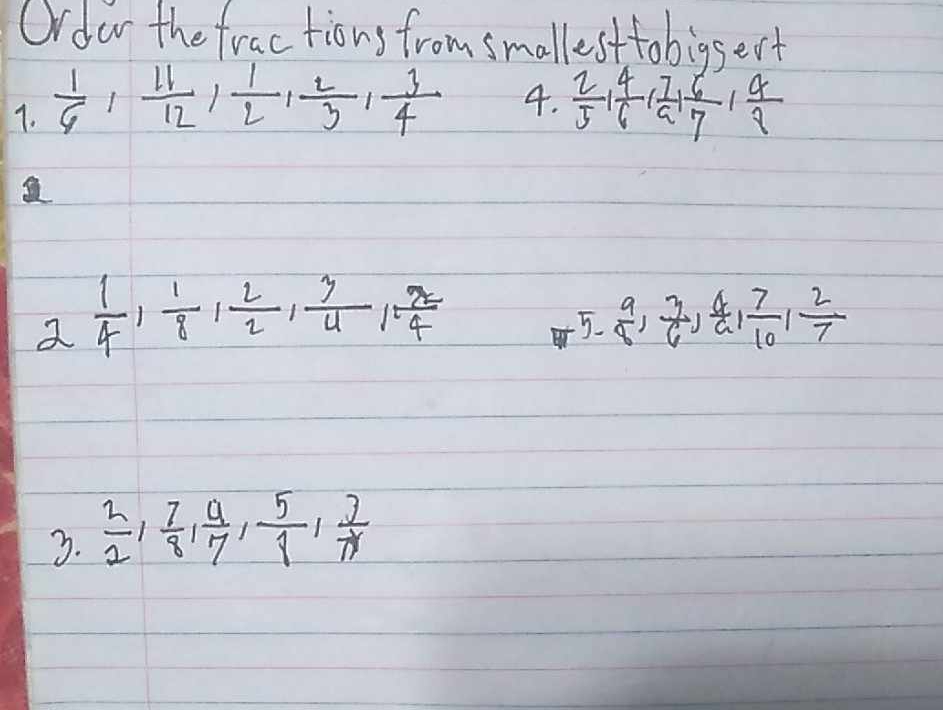 Order the fractions from smallest to biggest
1. 1/6, 11/12, 1/2, 2/3, 3/4
4. 2/5, 4/6, 7/9, 6/7, 4/8
2 1/4, 1/8, 2/2, 3/4, 2/4
5- 9/8, 3/6, 4/9, 7/10, 2/7
3. 2/2, 7/8, 9/7, 5/8, 3/7